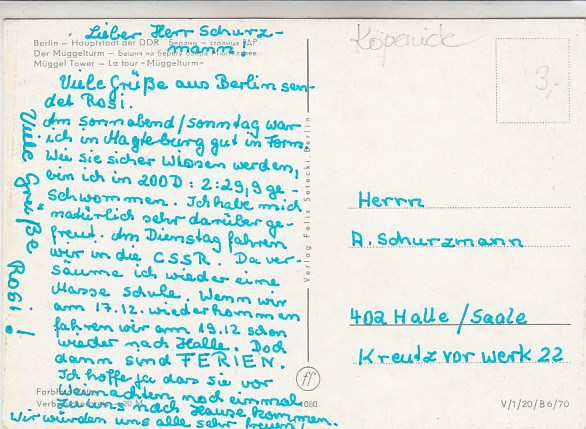 Lieber Herr Schurz-
mann!
Berlin – Hauptstadt der DDR
Der Müggelturm –
Müggel Tower – La tour «Müggelturm»
Viele Grüße aus Berlin sen-
det Rosi.
Am Sonnabend/Sonntag war
ich in Magteburg gut in Form
Wie sie sicher Wissen werden,
bin ich in 200D: 2:29,9 ge-
Schwommen. Ich habe mich
natürlich sehr darüber ge-
freut. Am Dienstag fahren
wir in die CSSR. Da ver-
säume ich wieder eine
Masse Schule. Wenn wir
am 17.12. wiederkommen
fahren wir am 19.12 schon
wieder nach Halle. Doch
dann sind FERIEN.
Ich hoffe ja das sie vor
Weinachten noch einmal
zu uns nach Hause kommen.
Wir würden uns alle sehr freuen!
Viele Grüße Rosi!
Verlag Felix Setecki, Berlin
Köpenick
3,-
Herrn
A. Schurzmann
402 Halle/Saale
Kreutz vor werk 22
V/1/20/B6/70